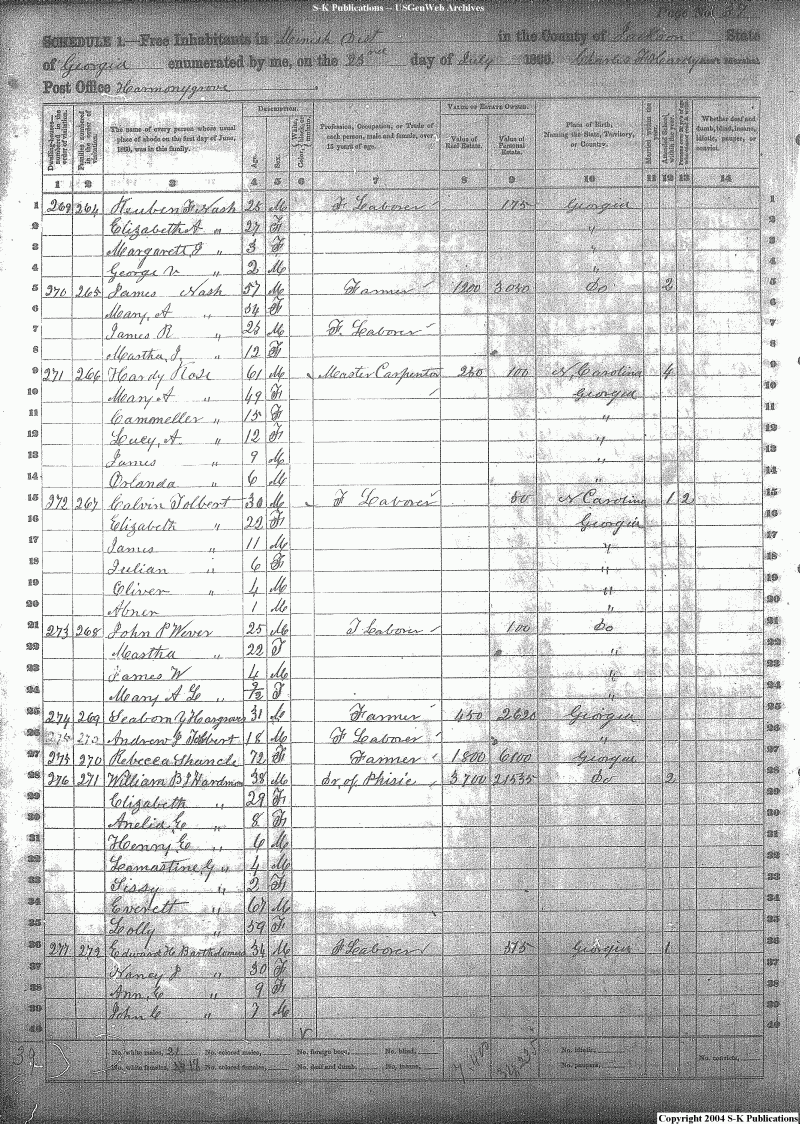 S-K Publications -- USGenWeb Archives
Page No. 37
SCHEDULE 1.—Free Inhabitants in Minish Dist in the County of Jackson State
of Georgia enumerated by me, on the 25 day of July 1860. Charles H Hardy Ass't Marshal.
Post Office Harmonygrove
Dwelling-houses—numbered in the order of visitation.
Families numbered in the order of visitation.
The name of every person whose usual place of abode on the first day of June, 1860, was in this family.
DESCRIPTION.
Age.
Sex.
Color, White, black, or mulatto.
Profession, Occupation, or Trade of each person, male and female, over 15 years of age.
VALUE OF ESTATE OWNED.
Value of Real Estate.
Value of Personal Estate.
Place of Birth, Naming the State, Territory, or Country.
Married within the year.
Attended School within the year.
Whether deaf and dumb, blind, insane, idiotic, pauper, or convict.
1 2 3 4 5 6 7 8 9 10 11 12 13 14
1 269 264 Reuben F Nash 25 M F Laborer 175 Georgia 1
2 Elizabeth A " 27 F " 2
3 Margarett J " 3 F " 3
4 George V " 2 M " 4
5 270 265 James Nash 57 M Farmer 1200 3030 Do 2 5
6 Mary, A " 54 F 6
7 James R " 23 M F Laborer 7
8 Martha J, " 12 F 8
9 271 266 Hardy Rose 61 M Master Carpentor 250 100 N, Carolina 4 9
10 Mary A " 49 F Georgia 10
11 Cammeller " 15 F " 11
12 Lucy, A " 12 F " 12
13 James " 9 M " 13
14 Orlanda " 6 M " 14
15 272 267 Calvin Tolbert 30 M F Laborer 50 N Carolina 1 2 15
16 Elizabeth " 22 F Georgia 16
17 James " 11 M " 17
18 Julian " 6 F " 18
19 Oliver " 4 M " 19
20 Abner 1 M " 20
21 273 268 John P Wever 25 M F Laborer 100 Do 21
22 Martha " 22 F " 22
23 James W 4 M " 23
24 Mary A L " 9/12 F " 24
25 274 269 Seaborn Y Hargrave 31 M Farmer 450 2620 Georgia 25
26 Andrew J Tolbert 18 M F Laborer " 26
27 275 270 Rebecca Shancle 72 F Farmer 1800 6100 Georgia 27
28 276 271 William B J Hardman 38 M dr, of Phisic 3700 21535 Do 2 28
29 Elizabeth " 29 F 29
30 Anelia, E " 8 F 30
31 Henny E " 6 M 31
32 Lamastine G " 4 M 32
33 Sissy " 2 F 33
34 Everett " 67 M 34
35 Lolly " 59 F 35
36 277 272 Edward H Bartholomew 34 M F Laborer 575 Georgia 1 36
37 Nancy J " 30 F 37
38 Ann, E " 9 F 38
39 John C " 7 M 39
40 40
No. white males, 21 No. colored males, No. foreign born, No. blind, No. idiotic, No. convicts,
No. white females, No. colored females, No. deaf and dumb, No. insane, No. paupers,
Copyright 2004 S-K Publications